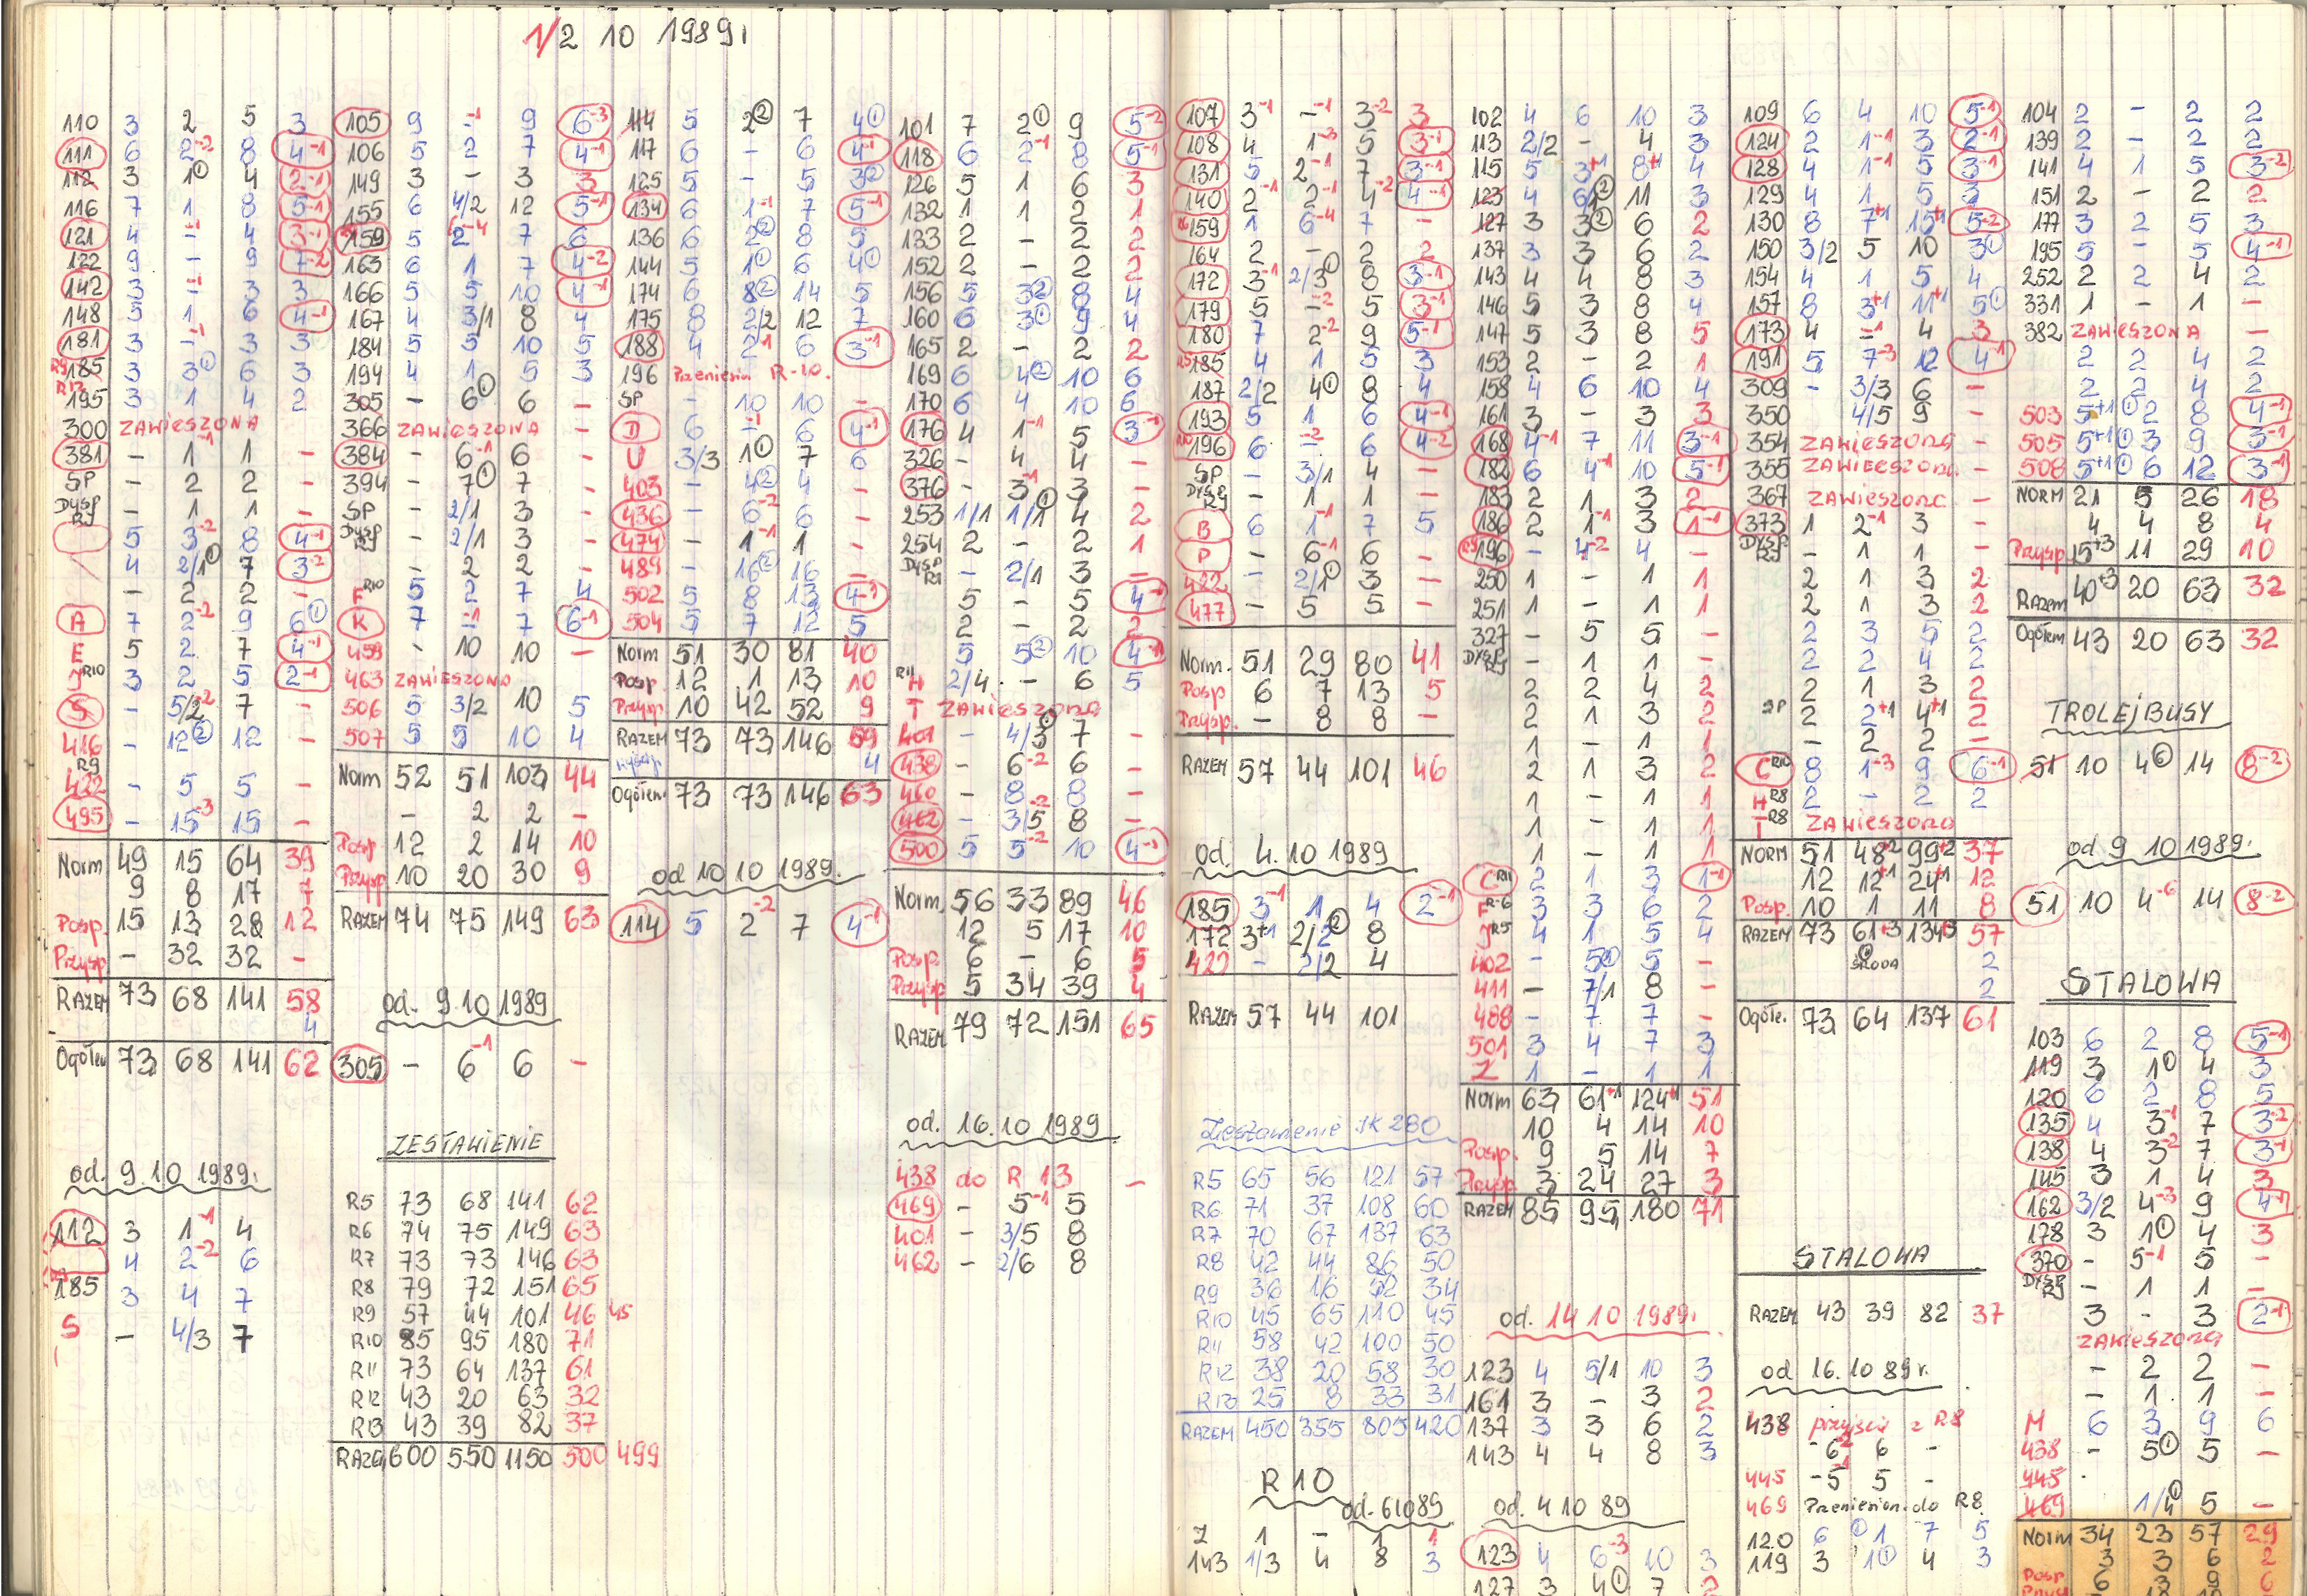 1/2 10 1989r
110 3 2 5 3
111 6 2-2 8 4-1
112 3 1① 4 2-1
116 7 1 8 5-1
121 4 --1 4 3-1
122 9 - 9 7-2
142 3 --1 3 3
148 5 1 6 4-1
181 3 --1 3 3
R9 185 3 3① 6 3
R12 195 3 1 4 2
300 ZAWIESZONA
381 - 1-1 1 -
SP - 2 2 -
DYSP R9 - 1 1 -
5 3-2 8 4-1
4 2/1① 7 3-2
- 2 2 -
A 7 2-2 9 6①
E 5 2 7 4-1
J R10 3 2 5 2-1
S - 5/2-2 7 -
416 - 12② 12 -
R9 422 - 5 5 -
495 - 15-3 15 -
Norm 49 15 64 39
9 8 17 7
Posp. 15 13 28 12
Przysp - 32 32 -
RAZEM 73 68 141 58
4
Ogółem 73 68 141 62
od. 9.10 1989r.
112 3 1-1 4
4 2-2 6
185 3 4 7
S - 4/3 7
105 9 --1 9 6-3
106 5 2 7 4-1
149 3 - 3 3
155 6 4/2 12 5-1
159 5 2-4 7 6
163 6 1 7 4-2
166 5 5 10 4-1
167 4 3/1 8 4
184 5 5 10 5
194 4 1 5 3
305 - 6① 6 -
366 ZAWIESZONA -
384 - 6-1 6 -
394 - 7① 7 -
SP - 2/1 3 -
DYSP R9 - 2/1 3 -
- 2 2 -
F R10 5 2 7 4
K 7 --1 7 6-1
459 - 10 10 -
463 ZAWIESZONA
506 5 3/2 10 5
507 5 5 10 4
Norm 52 51 103 44
- 2 2 -
Posp 12 2 14 10
Przysp. 10 20 30 9
RAZEM 74 75 149 63
od. 9.10 1989
305 - 6-1 6 -
ZESTAWIENIE
R5 73 68 141 62
R6 74 75 149 63
R7 73 73 146 63
R8 79 72 151 65
R9 57 44 101 46 45
R10 85 95 180 71
R11 73 64 137 61
R12 43 20 63 32
R13 43 39 82 37
RAZEM 600 550 1150 500 499
114 5 2② 7 4①
117 6 - 6 4-1
125 5 - 5 3②
134 6 1-1 7 5-1
136 6 2② 8 5
144 5 1① 6 4①
174 6 8② 14 5
175 8 2/2 12 7
188 4 2-1 6 3-1
196 Przeniesiona R-10.
SP - 10 10 -
D 6 --1 6 4-1
U 3/3 1① 7 6
403 - 4② 4 -
436 - 6-2 6 -
474 - 1-1 1 -
489 - 16② 16 -
502 5 8 13 4-1
504 5 7 12 5
Norm 51 30 81 40
Posp. 12 1 13 10
Przysp. 10 42 52 9
RAZEM 73 73 146 59
4
Ogółem. 73 73 146 63
od 10 10 1989.
114 5 2-2 7 4-1
101 7 2① 9 5-2
118 6 2-1 8 5-1
126 5 1 6 3
132 1 1 2 1
133 2 - 2 2
152 2 - 2 2
156 5 3② 8 4
160 6 3① 9 4
165 2 - 2 2
169 6 4② 10 6
170 6 4 10 6
176 4 1-1 5 3-1
326 - 4 4 -
376 - 3-1 3 -
253 1/1 1/1① 4 2
254 2 - 2 1
DYSP R9 - 2/1 3 -
5 - 5 4-1
2 - 2 2
5 5② 10 4-1
R11 H 2/4 - 6 5
T ZAWIESZONA
401 - 4/3① 7 -
438 - 6-2 6 -
460 - 8 8 -
462 - 3/5-2 8 -
500 5 5-2 10 4-1
Norm. 56 33 89 46
12 5 17 10
Posp. 6 - 6 5
Przysp 5 34 39 4
RAZEM 79 72 151 65
od. 16.10 1989
438 do R 13 -
469 - 5-1 5
401 - 3/5 8
462 - 2/6 8
107 3-1 --1 3-2 3
108 4 1-3 5 3-1
131 5 2-1 7 3-1
140 2-1 2-1 4-2 4-1
R6 159 1 6-4 7 -
164 2 - 2 2
172 3-1 2/3① 8 3-1
179 5 --2 5 3-1
180 7 2-2 9 5-1
R5 185 4 1 5 3
187 2/2 4① 8 4
193 5 1 6 4-1
R10 196 6 --2 6 4-2
SP - 3/1 4 -
DYSP R9 - 1 1 -
B 6 1-1 7 5
P - 6-1 6 -
422 - 2/1① 3 -
477 - 5 5 -
Norm. 51 29 80 41
Posp 6 7 13 5
Przysp. - 8 8 -
RAZEM 57 44 101 46
od. 4.10 1989
185 3-1 1 4 2-1
172 3+1 2/2① 8
422 - 2/2 4
RAZEM 57 44 101
Zestawienie JK 280
R5 65 56 121 57
R6 71 37 108 60
R7 70 67 137 63
R8 42 44 86 50
R9 36 16 52 34
R10 45 65 110 45
R11 58 42 100 50
R12 38 20 58 30
R13 25 8 33 31
RAZEM 450 355 805 420
R 10
od. 6 10 89
Z 1 - 1 1
143 1/3 4 8 3
102 4 6 10 3
113 2/2 - 4 3
115 5 3+1 8+1 4
123 4 6/1② 11 3
127 3 3② 6 2
137 3 3 6 2
143 4 4 8 3
146 5 3 8 4
147 5 3 8 5
153 2 - 2 1
158 4 6 10 4
161 3 - 3 3
168 4-1 7 11 3-1
182 6 4-1 10 5-1
183 2 1 3 2
186 2 1-1 3 1-1
R9 196 - 4-2 4 -
250 1 - 1 1
251 1 - 1 1
327 - 5 5 -
DYSP R9 - 1 1 -
2 2 4 2
2 1 3 2
1 - 1 1
2 1 3 2
1 - 1 1
1 - 1 1
1 - 1 1
C R11 2 1 3 1-1
F R-6 3 3 6 2
J R5 4 1 5 4
402 - 5① 5 -
411 - 7/1 8 -
488 - 7 7 -
501 3 4 7 3
Z 1 - 1 1
Norm 63 61+1 124+1 51
10 4 14 10
Posp. 9 5 14 7
Przysp. 3 24 27 3
RAZEM 85 95 180 71
od. 14 10 1989r.
123 4 5/1 10 3
161 3 - 3 2
137 3 3 6 2
143 4 4 8 3
od. 4 10 89
123 4 6-3 10 3
127 3 4① 7 2
109 6 4 10 5-1
124 2 1-1 3 2-1
128 4 1-1 5 3-1
129 4 1 5 3
130 8 7+1 15+1 5-2
150 3/2 5 10 3①
154 4 1 5 4
157 8 3+1 11+1 5①
173 4 --1 4 3
191 5 7-3 12 4-1
309 - 3/3 6 -
350 4/5 9 -
354 ZAWIESZONA -
355 ZAWIESZONA -
367 ZAWIESZONA -
373 1 2-1 3 -
DYSP R9 - 1 1 -
2 1 3 2
2 1 3 2
2 3 5 2
2 2 4 2
2 1 3 2
SP 2 2+1 4+1 2
- 2 2 -
C R10 8 1-3 9 6-1
H R8 2 - 2 2
T R8 ZAWIESZONA
NORM 51 48+2 99+2 37
12 12+1 24+1 12
Posp. 10 1 11 8
RAZEM 73 61+3 134+3 57
ŚRODA 2
2
Ogółe. 73 64 137 61
STALOWA
RAZEM 43 39 82 37
od 16.10 89r.
438 przyjście z R8
- 6-2 6 -
445 - 5-1 5 -
469 Przeniesion. do R8
120 6 ① 1 7 5
119 3 1① 4 3
104 2 - 2 2
139 2 - 2 2
141 4 1 5 3-2
151 2 - 2 2
177 3 2 5 3
195 5 - 5 4-1
252 2 2 4 2
331 1 - 1 -
382 ZAWIESZONA -
2 2 4 2
2 2 4 2
503 5+1 ① 2 8 4-1
505 5+1 ① 3 9 3-1
508 5+1 ① 6 12 3-1
NORM 21 5 26 18
4 4 8 4
Przysp 15+3 11 29 10
Razem 40+3 20 63 32
Ogółem 43 20 63 32
TROLEJBUSY
51 10 4⑥ 14 8-2
od 9 10 1989r.
51 10 4-6 14 8-2
STALOWA
103 6 2 8 5-1
119 3 1① 4 3
120 6 2 8 5
135 4 3-1 7 3-2
138 4 3-2 7 3-1
145 3 1 4 3
162 3/2 4-3 9 4-1
178 3 1① 4 3
370 - 5-1 5 -
DYSP R9 - 1 1 -
3 - 3 2-1
ZAWIESZONA
- 2 2 -
- 1 1 -
M 6 3 9 6
438 - 5① 5 -
445
469 1/4① 5 -
NORM 34 23 57 29
3 3 6 2
Posp 6 3 9 6